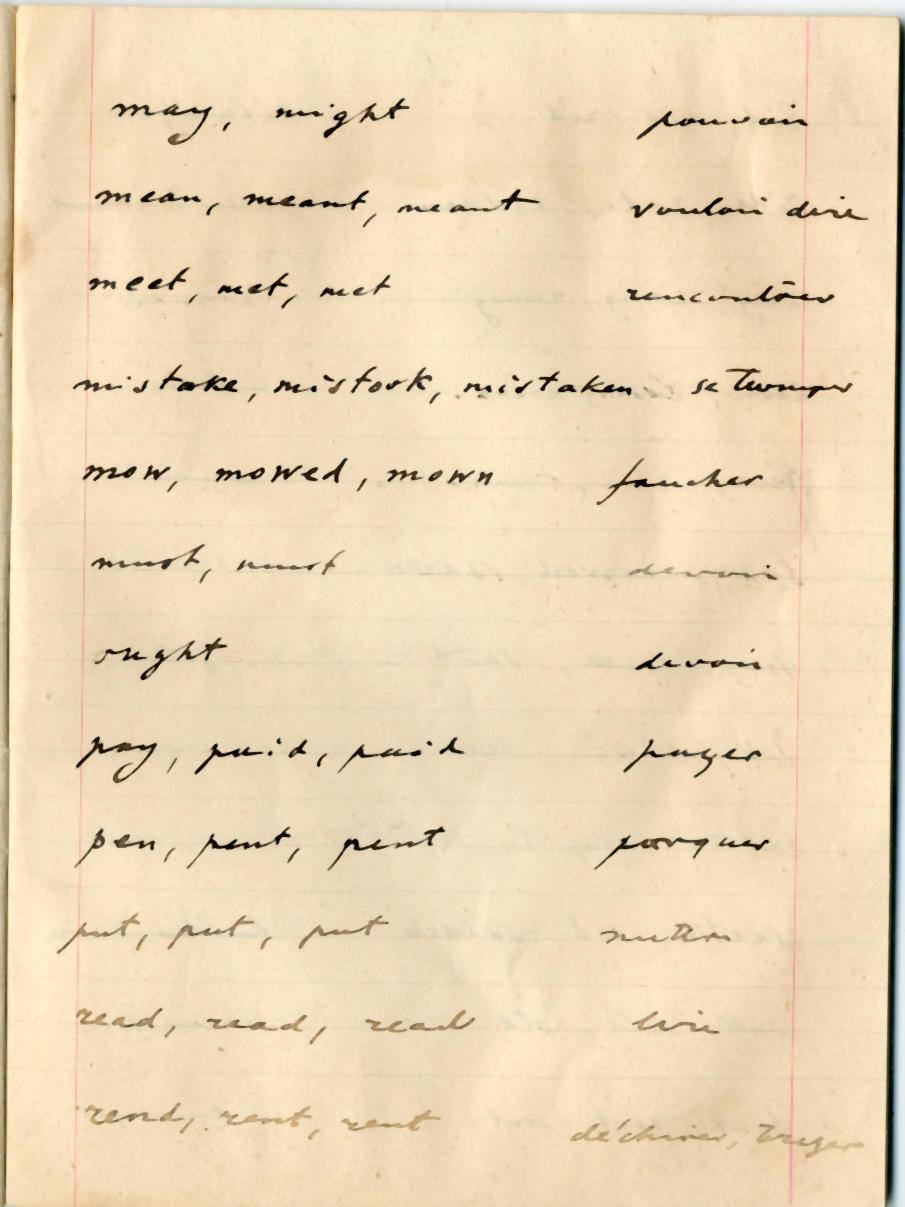 may, might pouvoir
mean, meant, meant vouloir dire
meet, met, met rencontrer
mistake, mistook, mistaken se tromper
mow, mowed, mown faucher
must, must devoir
ought devoir
pay, paid, paid payer
pen, pent, pent parquer
put, put, put mettre
read, read, read lire
rend, rent, rent déchirer,